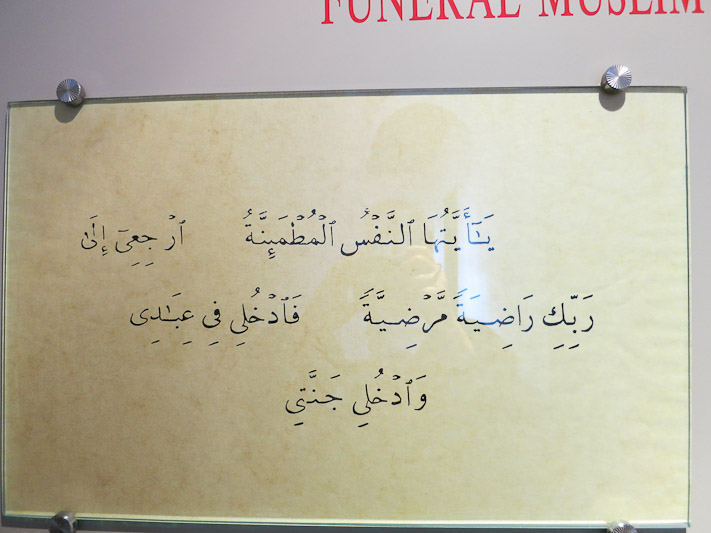 FUNERAL MUSLIM
يَـٰٓأَيَّتُهَا ٱلنَّفْسُ ٱلْمُطْمَئِنَّةُ ٱرْجِعِىٓ إِلَىٰ
رَبِّكِ رَاضِيَةً مَّرْضِيَّةً فَٱدْخُلِي فِي عِبَـٰدِى
وَٱدْخُلِي جَنَّتِي